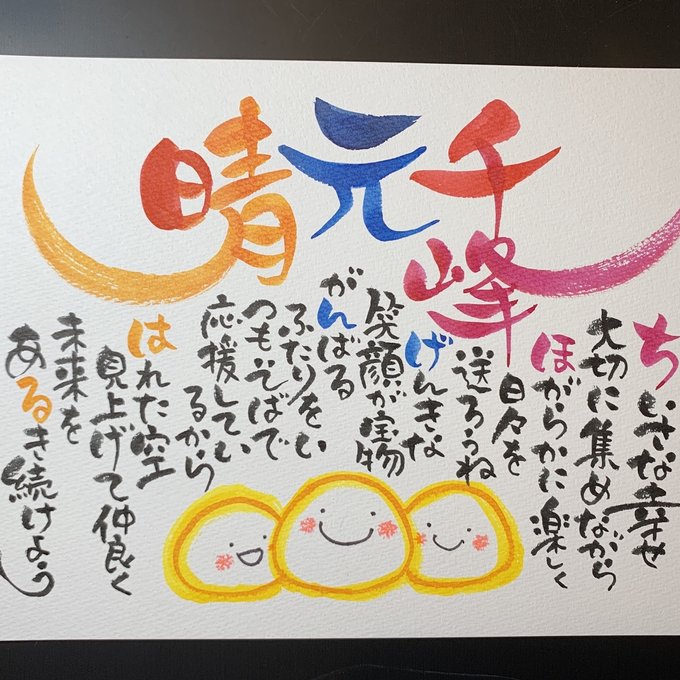 千峰
元
晴
ちいさな幸せ
大切に集めながら
ほがらかに楽しく
日々を
送ろうね
げんきな
笑顔が宝物
がんばる
ふたりをい
つもそばで
応援してい
るから
はれた空
見上げて仲良く
未来を
あるき続けよう